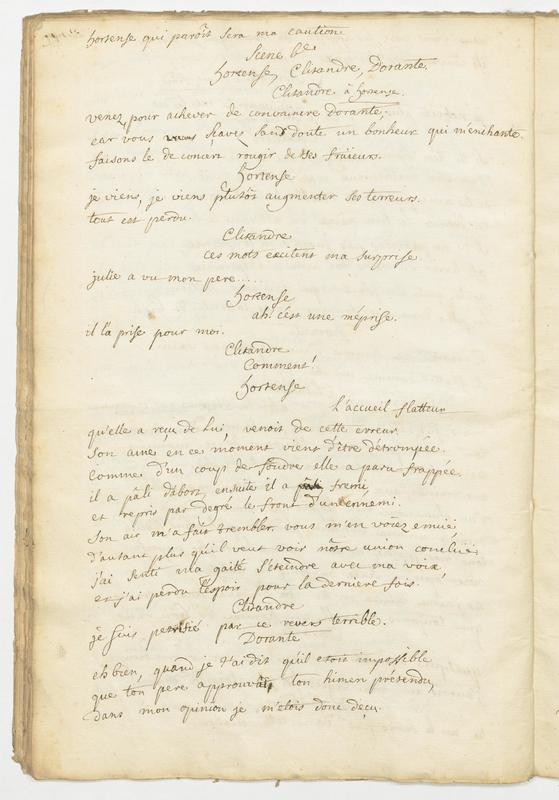 hortense qui paroît sera ma caution
Scene 6e
hortense, Clitandre, Dorante
Clitandre à hortense.
venez pour achever de convaincre Dorante.
car vous sçavez sans doute un bonheur qui m'enchante.
faisons le de concert rougir de ses fraïeurs.
hortense
je viens, je viens plutôt augmenter ses terreurs.
tout est perdu.
Clitandre
ces mots excitent ma surprise
julie a vu mon pere.....
hortense
ah! c'est une méprise.
il l'a prise pour moi.
Clitandre
Comment!
hortense
L'accueil flatteur
qu'elle a reçu de lui, venoit de cette erreur
Son ame en ce moment vient d'être détrompée.
Comme d'un coup de foudre elle a paru frappée.
il a pali d'abort, ensuite il a fremi
et repris par degré le front d'un ennemi.
Son air m'a fait trembler. vous m'en voiez emuë,
d'autant plus qu'il veut voir nôtre union concluë.
j'ai senti ma gaité s'éteindre avec ma voix,
et j'ai perdu l'espoir pour la derniere fois.
Clitandre
je suis petrifié par ce revers terrible.
Dorante
eh bien, quand je t'ai dit qu'il etoit impossible
que ton pere approuvât ton himen prétendu,
Dans mon opinion je m'étois donc deçu.